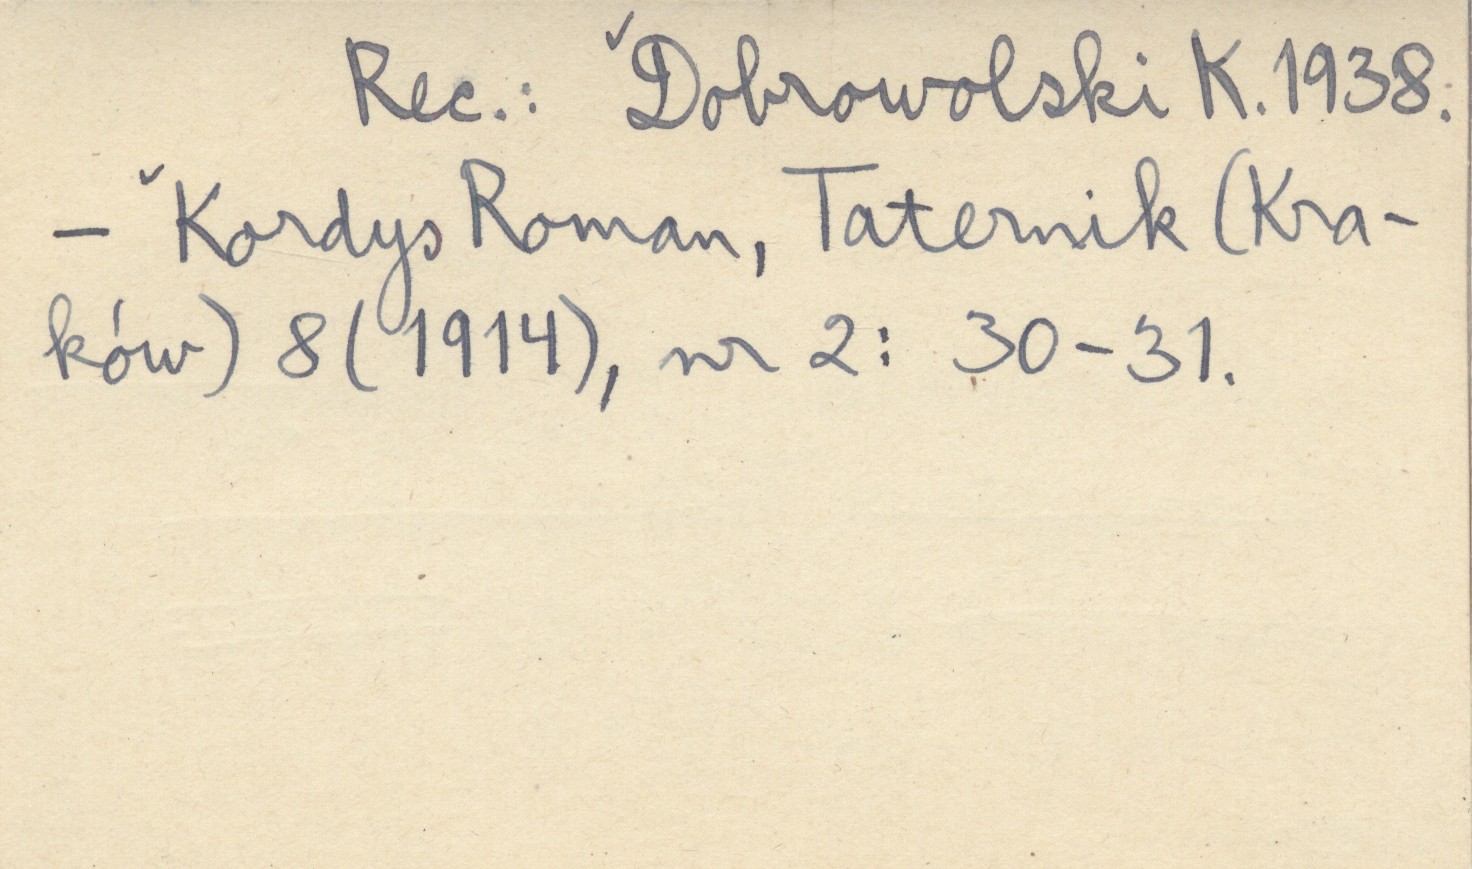 Rec.: ˅Dobrowolski K. 1938.
– ˅Kordys Roman, Taternik (Kra-
ków) 8 (1914), nr 2: 30-31.